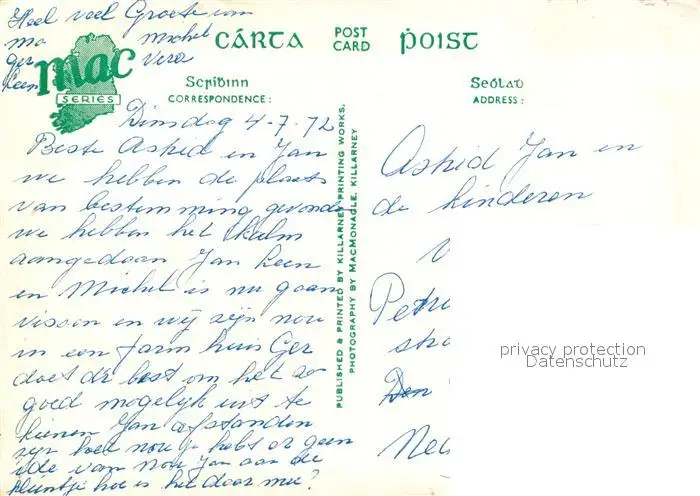 Heel veel Groete van
ma Michel
ger Vera
Leen
mac
SERIES
CÁRTA POST CARD ṖOIST
Scríbinn
CORRESPONDENCE:
Seólad
ADDRESS:
Dinsdag 4-7-72
Beste Astrid en Jan
we hebben de plaats
van bestemming gevonde
we hebben het kalm
aangedaan Jan Leen
en Michel is nu gaan
vissen en wij zijn nou
in een farm huis Ger
doet d'r best om het zo
goed mogelijk uit te
kienen Jan afstanden
zijn hoor nou je hebt er geen
ide van nou Jan aan de
hoe is het daar mee?
PUBLISHED & PRINTED BY KILLARNEY PRINTING WORKS,
PHOTOGRAPHY BY MACMONAGLE, KILLARNEY
Astrid Jan en
de kinderen
Petru
stra
Den
Ned
privacy protection
Datenschutz